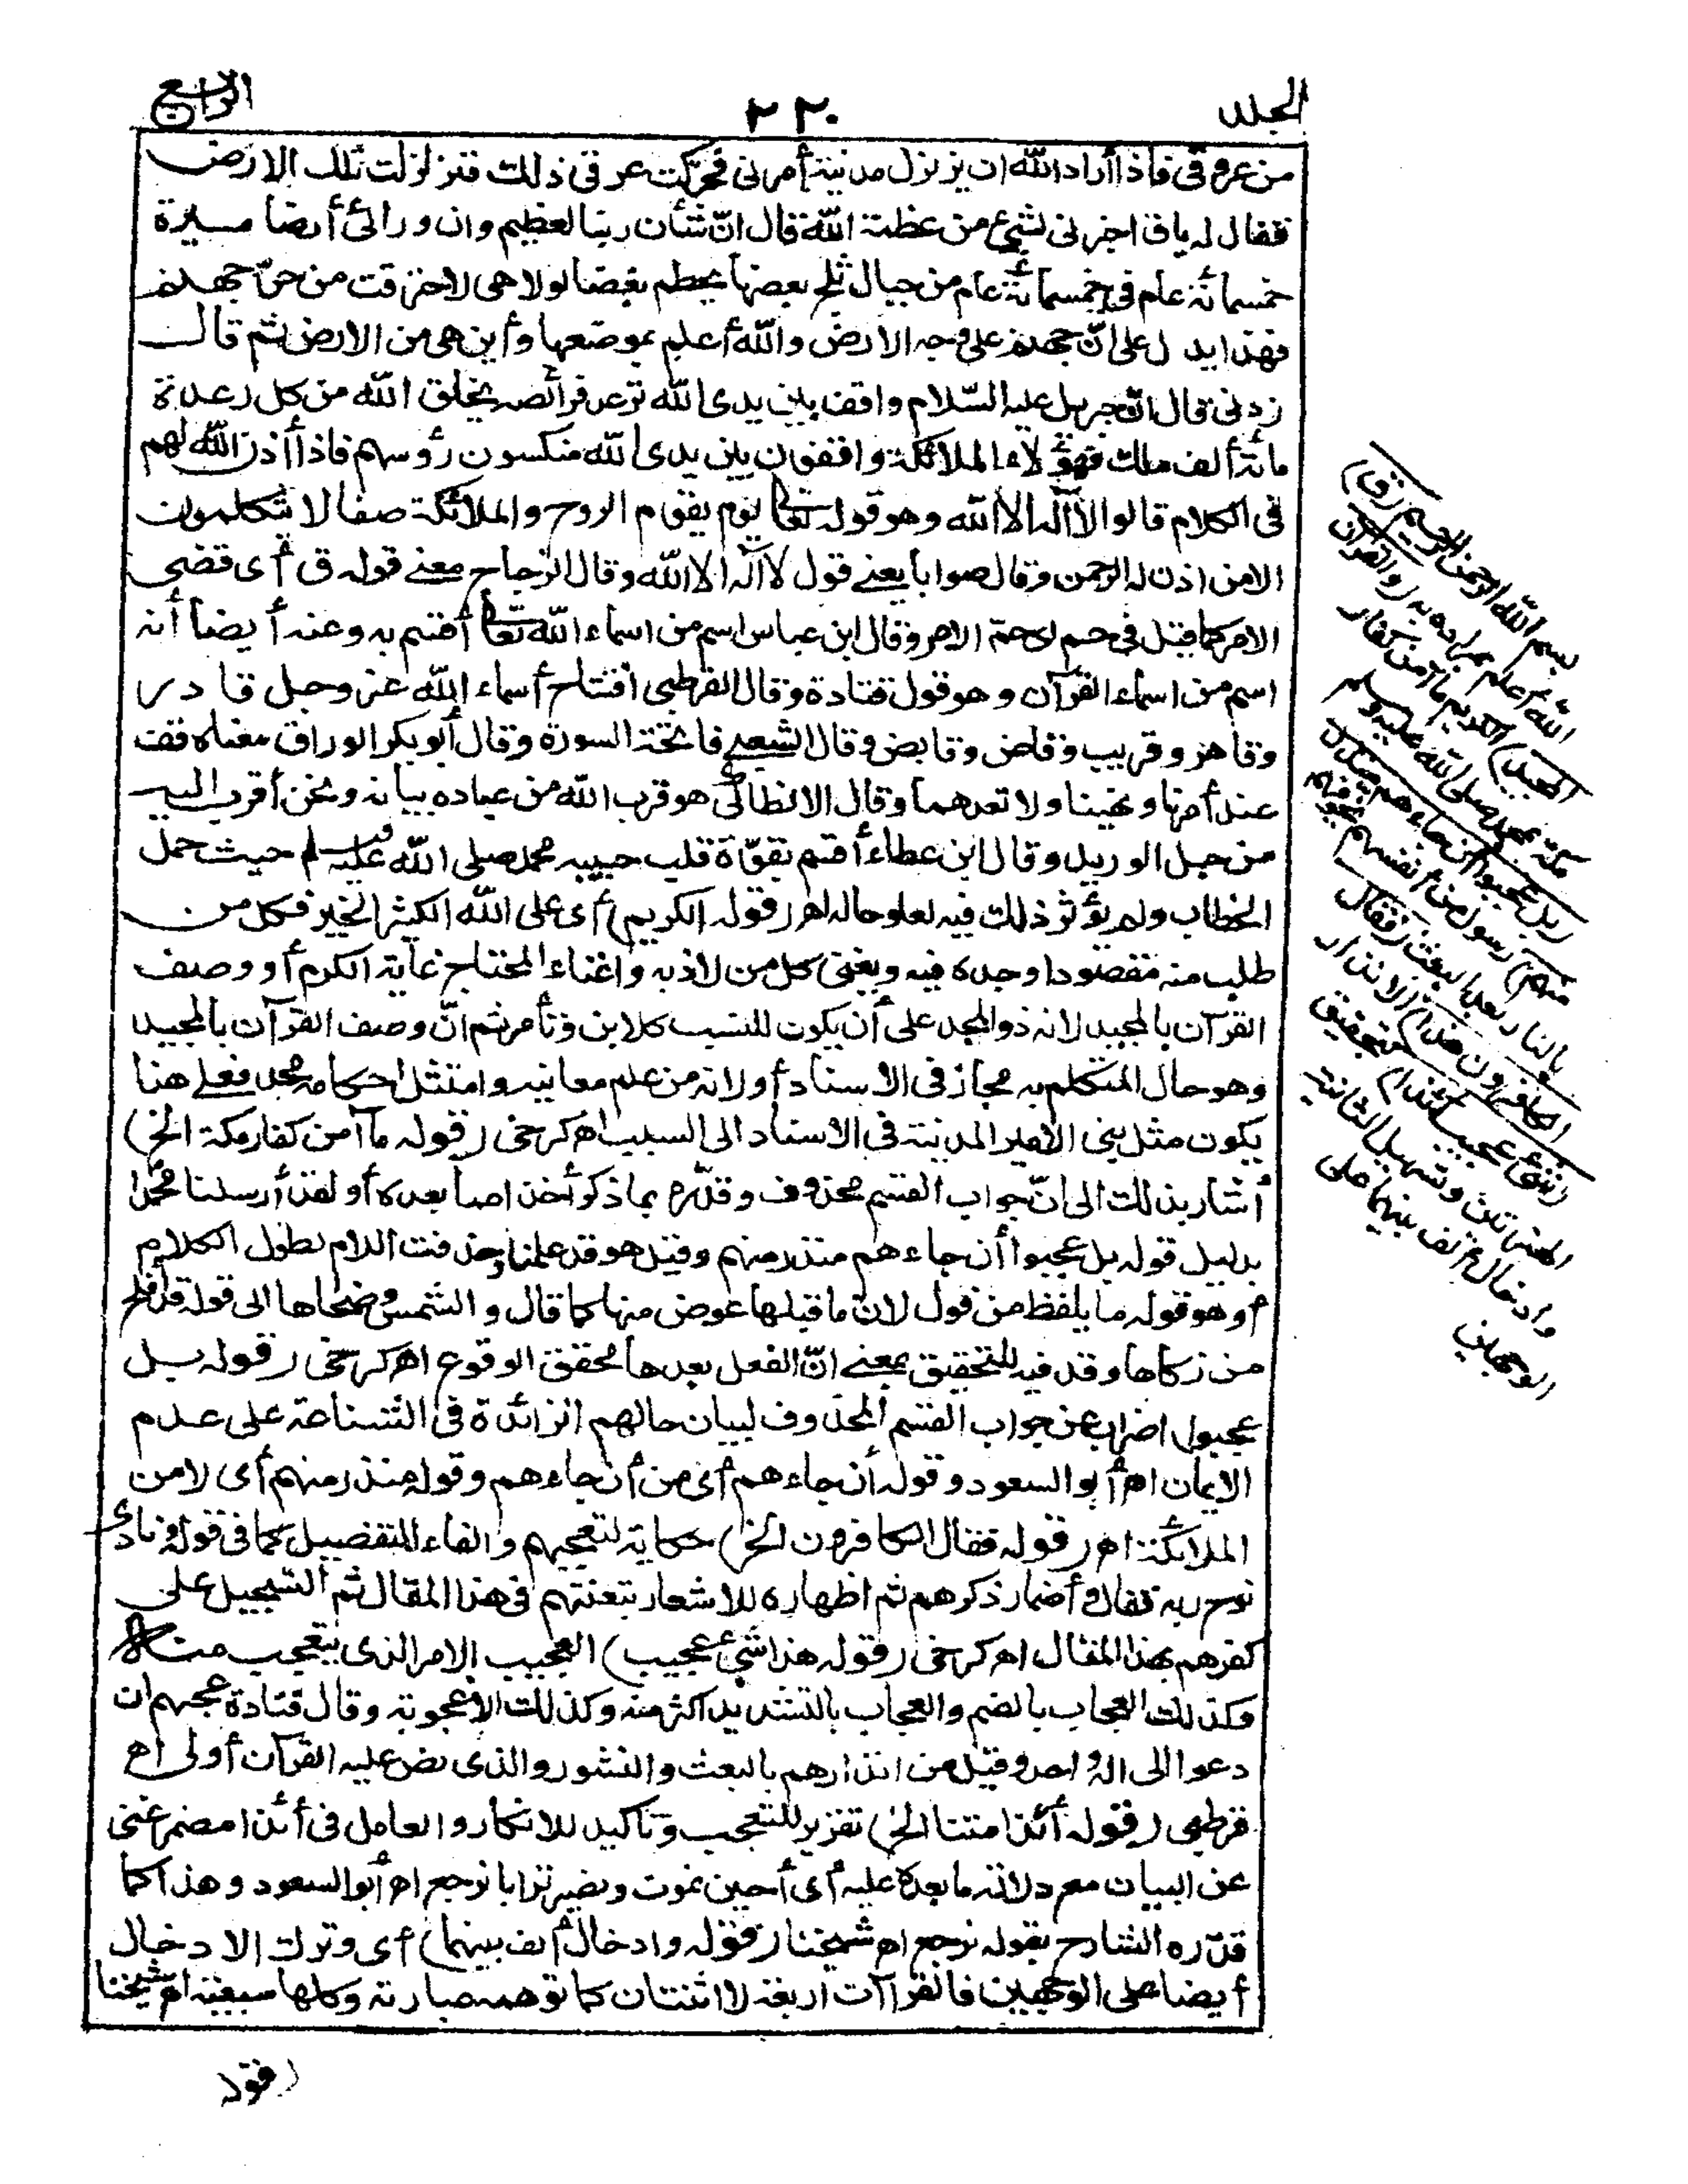 المجلد
٢٢٠
الرابع
من عروقى فاذا أراد الله ان يزلزل مدينة أمرنى فحركت عرقى ذلك فتزلزلت تلك الارض
فقال له ياق اخبرنى بشئ من عظمة الله قال انّ شأن ربنا لعظيم وان ورائى أرضا مسيرة
خمسمائة عام فى خمسمائة عام من جبال ثلج بعضها يحطم بعضا لولا هى لاحترقت من حرّ جهنم
فهذا يدل على انّ جهنم على وجه الارض والله أعلم بموضعها وأين هى من الارض ثم قال
زدنى قال انّ جبريل عليه السّلام واقف بين يدى الله ترعد فرائصه يخلق الله من كل رعدة
مائة ألف ملك فهؤلاء الملائكة واقفون بين يدى الله منكسون رؤسهم فاذا أذن الله لهم
فى الكلام قالوا لا آله الا الله وهو قوله تعالى يوم يقوم الروح والملائكة صفا لا يتكلمون
الا من اذن له الرحمن وقال صوابا يعنے قول لا آله الا الله وقال الزجاج معنے قوله ق أى قضى
الامر كما قيل فى حم أى حمّ الامر وقال ابن عباس اسم من اسماء الله تعالى أقسم به وعنه أيضا أنه
اسم من اسماء القرآن وهو قول قتادة وقال القرطبى افتتاح أسماء الله عز وجل قادر
وقاهر وقريب وقاض وقابض وقال الشعبے فاتحة السورة وقال أبو بكر الوراق معناه قف
عند أمرنا ونهينا ولا تعدهما وقال الانطاكى هو قرب الله من عباده بيانه ونحن أقرب اليه
من حبل الوريد وقال ابن عطاء أقسم بقوّة قلب حبيبه محمد صلى الله عليه وسلم حيث حمل
الخطاب ولم يؤثر ذلك فيه لعلو حاله اهـ (قوله الكريم) أى على الله الكثير الخير فكل من
طلب منه مقصودا وجده فيه ويغنى كل من لاذ به واغناء المحتاج غاية الكرم أو وصف
القرآن بالمجيد لانه ذو المجد على أن يكون للنسب كلابن وتأمر ثم انّ وصف القرآن بالمجيد
وهو حال المتكلم به مجاز فى الاسناد أو لانه من علم معانيه وامتثل احكامه مجد فعلے هذا
يكون مثل بنى الامير المدينة فى الاسناد الى السبب اهـ كرخى (قوله ما آمن كفار مكة الخ)
أشار بذلك الى انّ جواب القسم محذوف وقدّره بما ذكر أخذا مما بعده أو لقد أرسلنا محمدا
بدليل قوله بل عجبوا أن جاءهم منذر منهم وقيل هو قد علمنا وحذفت اللام لطول الكلام
أو هو قوله ما يلفظ من قول لانّ ما قبلها عوض منها كما قال والشمس وضحاها الى قوله قد أفلح
من زكاها وقد فيه للتحقيق بمعنے انّ الفعل بعدها محقق الوقوع اهـ كرخى (قوله بل
عجبوا) اضراب عن جواب القسم المحذوف لبيان حالهم الزائدة فى الشناعة على عدم
الايمان اهـ أبو السعود وقوله أن جاءهم أى من أن جاءهم وقوله منذر منهم أى لا من
الملائكة اهـ (قوله فقال الكافرون الخ) حكاية لتعجبهم والفاء للتفصيل كما فى قوله ونادى
نوح ربه فقال وأضمار ذكرهم ثم اظهاره للاشعار بتعنتهم فى هذا المقال ثم التسجيل على
كفرهم بهذا المقال اهـ كرخى (قوله هذا شئ عجيب) العجيب الامر الذى يتعجب منه
وكذلك العجاب بالضم والعجاب بالتشديد أكثر منه وكذلك الاعجوبة وقال قتادة عجبهم ان
دعوا الى اله واحد وقيل من انذارهم بالبعث والنشور والذى نص عليه القرآن أولى اهـ
قرطبى (قوله أئذا متنا الخ) تقرير للتعجب وتأكيد للانكار والعامل فى أئذا مضمر غنى
عن البيان مع دلالة ما بعده عليه أى أحين نموت ونصير ترابا نرجع اهـ أبو السعود وهذا كما
قدّره الشارح بقوله نرجع اهـ شيخنا (قوله وادخال ألف بينهما) أى وترك الادخال
أيضا على الوجهين فالقراآت اربعة لا اثنتان كما توهمه عبارته وكلها سبعية اهـ شيخنا
بسم الله الرحمن الرحيم (ق)
الله أعلم بمراده به (والقرآن
المجيد) الكريم ما آمن كفار
مكة بمحمد صلى الله عليه وسلم
(بل عجبوا أن جاءهم منذر
منهم) رسول من أنفسهم يخوفهم
بالنار بعد البعث (فقال
الكافرون هذا) الانذار
(شئ عجيب أئذا) بتحقيق
الهمزتين وتسهيل الثانية
وادخال ألف بينهما على
الوجهين
(قوله